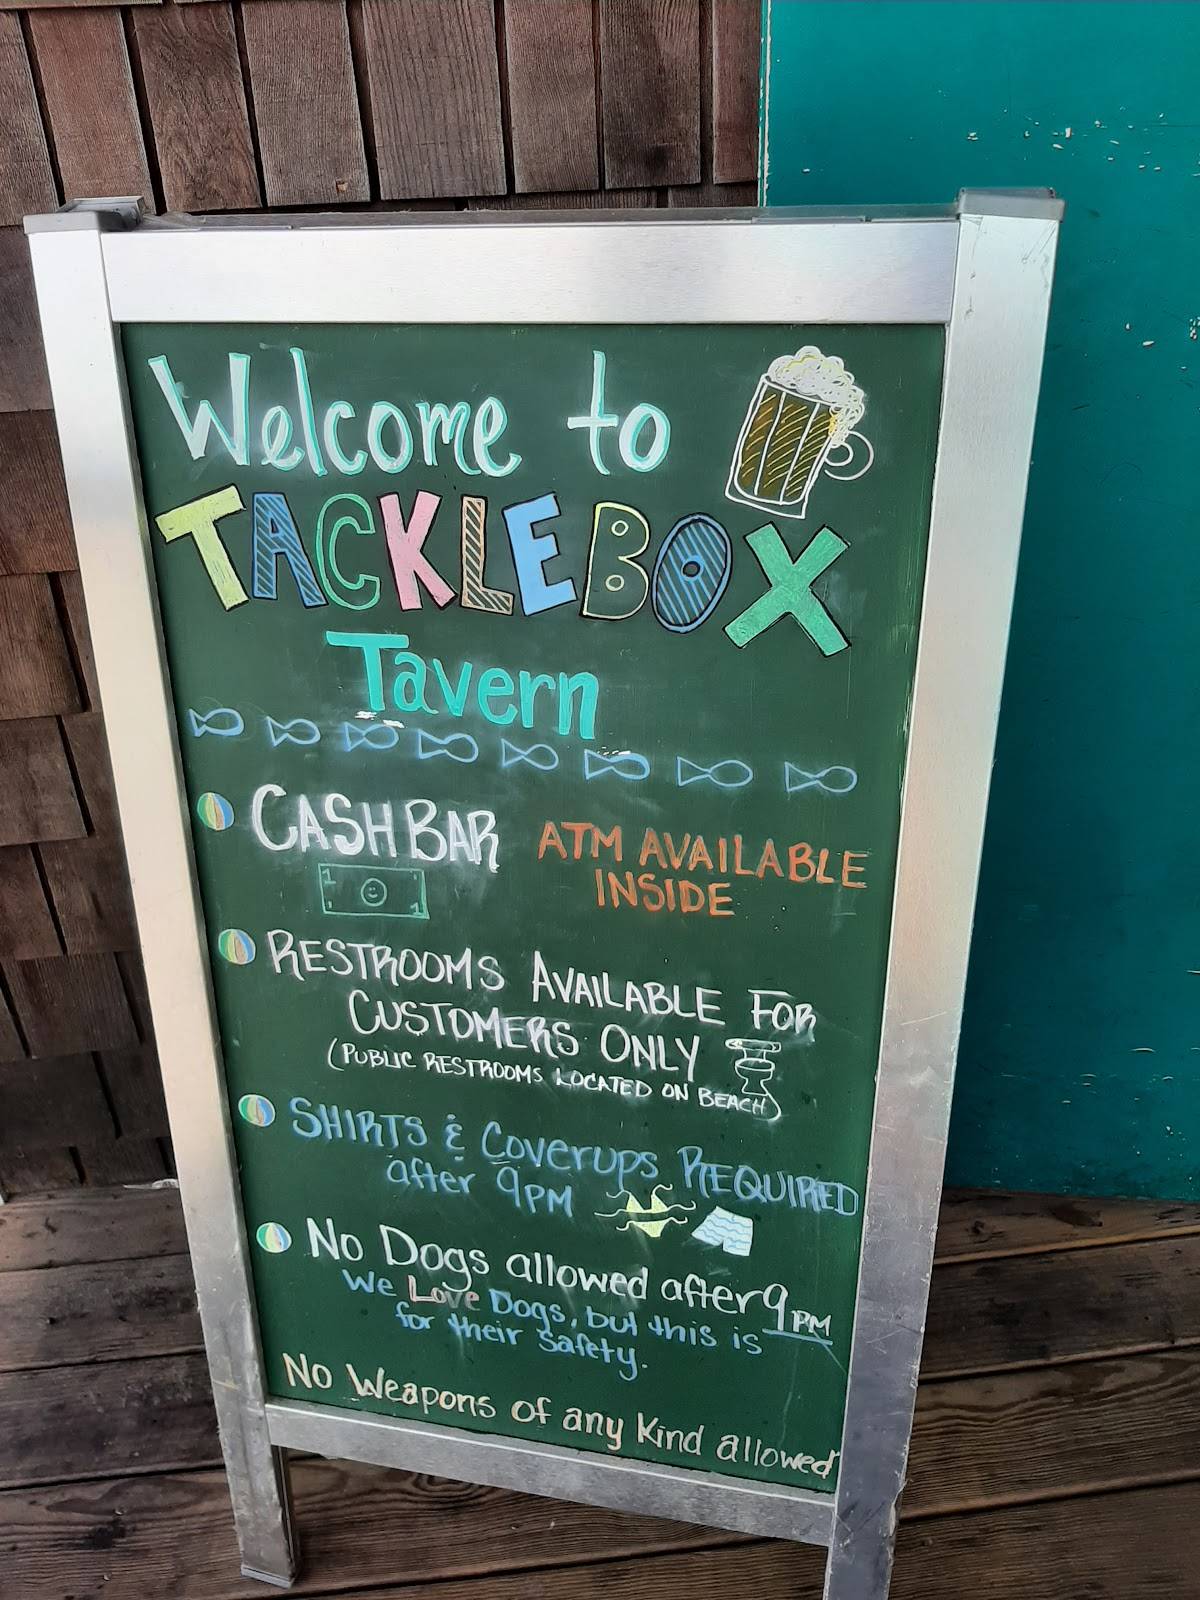 Welcome to
TACKLEBOX
Tavern
CASH BAR
ATM AVAILABLE
INSIDE
1
1
RESTROOMS AVAILABLE FOR
CUSTOMERS ONLY
(PUBLIC RESTROOMS LOCATED ON BEACH)
SHIRTS & COVERUPS REQUIRED
after 9PM
No Dogs allowed after 9PM
We Love Dogs, but this is
for their safety.
No Weapons of any Kind allowed